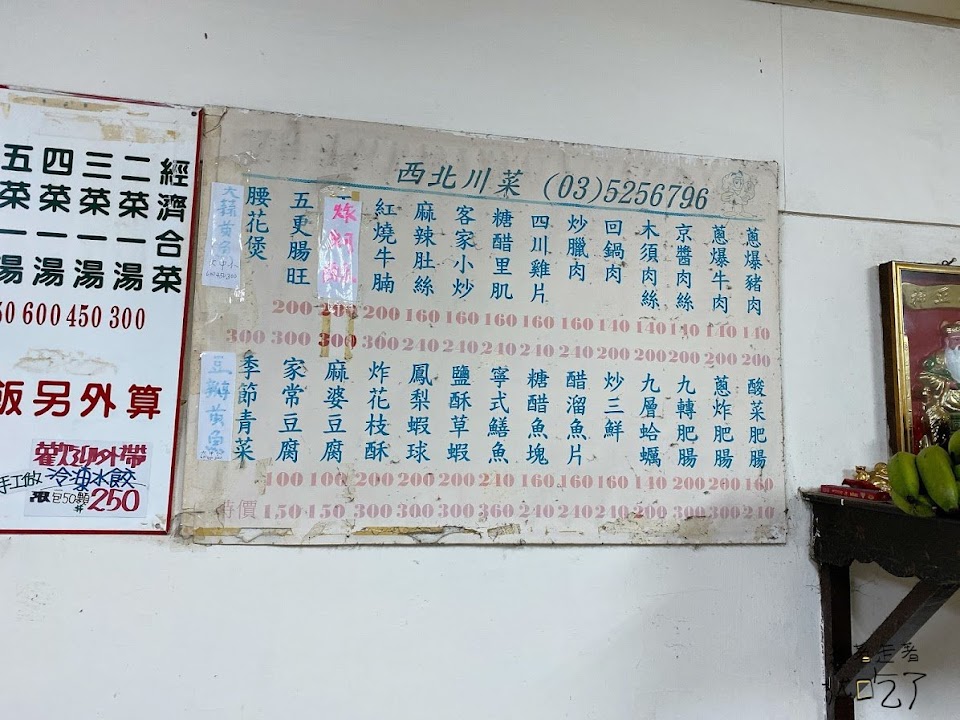 經濟合菜
二菜一湯
三菜一湯
四菜一湯
五菜一湯
600 450 300
飯另外算
歡迎外帶
手工做
冷凍水餃
包50顆
250
西北川菜 (03)5256796
蔥爆豬肉
蔥爆牛肉
京醬肉絲
木須肉絲
回鍋肉
炒臘肉
四川雞片
糖醋里肌
客家小炒
麻辣肚絲
紅燒牛腩
五更腸旺
腰花煲
大蒜黃魚
200 200 200 160 160 160 160 160 140 140 140 140 140
300 300 300 300 240 240 240 240 240 200 200 200 200 200
酸菜肥腸
蔥炸肥腸
九轉肥腸
九層蛤蠣
炒三鮮
醋溜魚片
糖醋魚塊
寧式鱔魚
鹽酥草蝦
鳳梨蝦球
炸花枝酥
麻婆豆腐
家常豆腐
季節青菜
豆瓣黃魚
特價 150 150 300 300 300 360 240 240 240 200 300 300 240